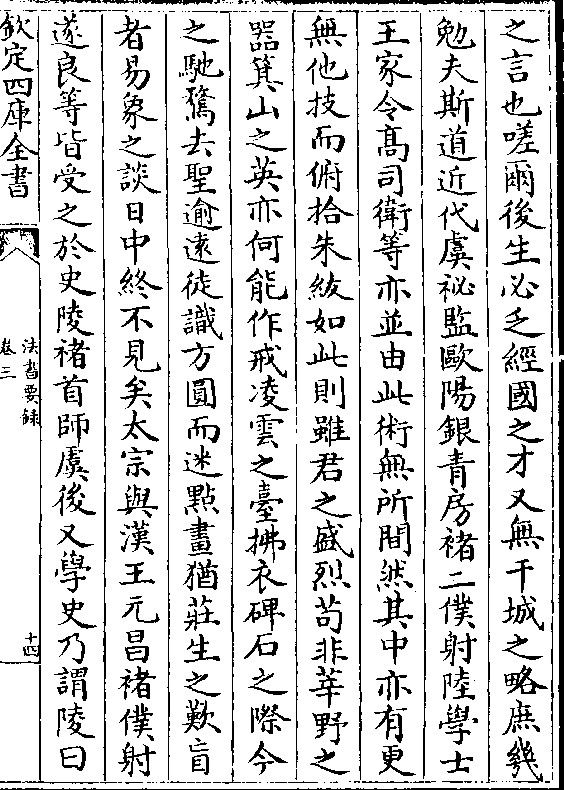 之言也嗟爾後生必乏經國之才又無干城之略庶幾
勉夫斯道近代虞祕監歐陽銀青房褚二僕射陸學士
王家令髙司衛等亦並由此術無所間然其中亦有更
無他技而俯拾朱紱如此則雖君之盛烈苟非莘野之
器箕山之英亦何能作戒凌雲之臺拂衣碑石之際今
之馳騖去聖逾逺徒識方圓而迷點畫猶莊生之歎盲
者易象之談日中終不見矣太宗與漢王元昌褚僕射
遂良等皆受之於史陵褚首師虞後又學史乃謂陵曰
欽定四庫全書
法書要録
卷三
十四